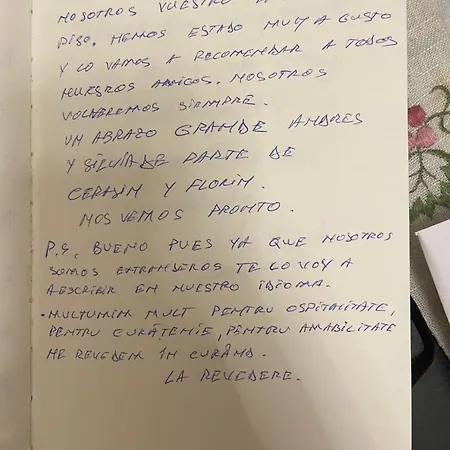 NOSOTROS VUESTRO
PISO. HEMOS ESTADO MUY A GUSTO
Y LO VAMOS A RECOMENDAR A TODOS
NUESROS AMIGOS. NOSOTROS
VOLVEREMOS SIEMPRE.
UN ABRAZO GRANDE ANDRES
Y SILVIA DE PARTE DE
CERASIM Y FLORIM.
NOS VEMOS PRONTO.
P.S. BUENO PUES YA QUE NOSOTROS
SOMOS EXTRANJEROS TE LO VOY A
AESCRIBIR EN NUESTRO IDIOMA.
-MULTUMIM MULT PENTRU OSPITALITATE,
PENTRU CURĂTEMIE, PENTRU AMABILITATE
NE REVEDEM IN CURÂND.
LA REVEDERE.